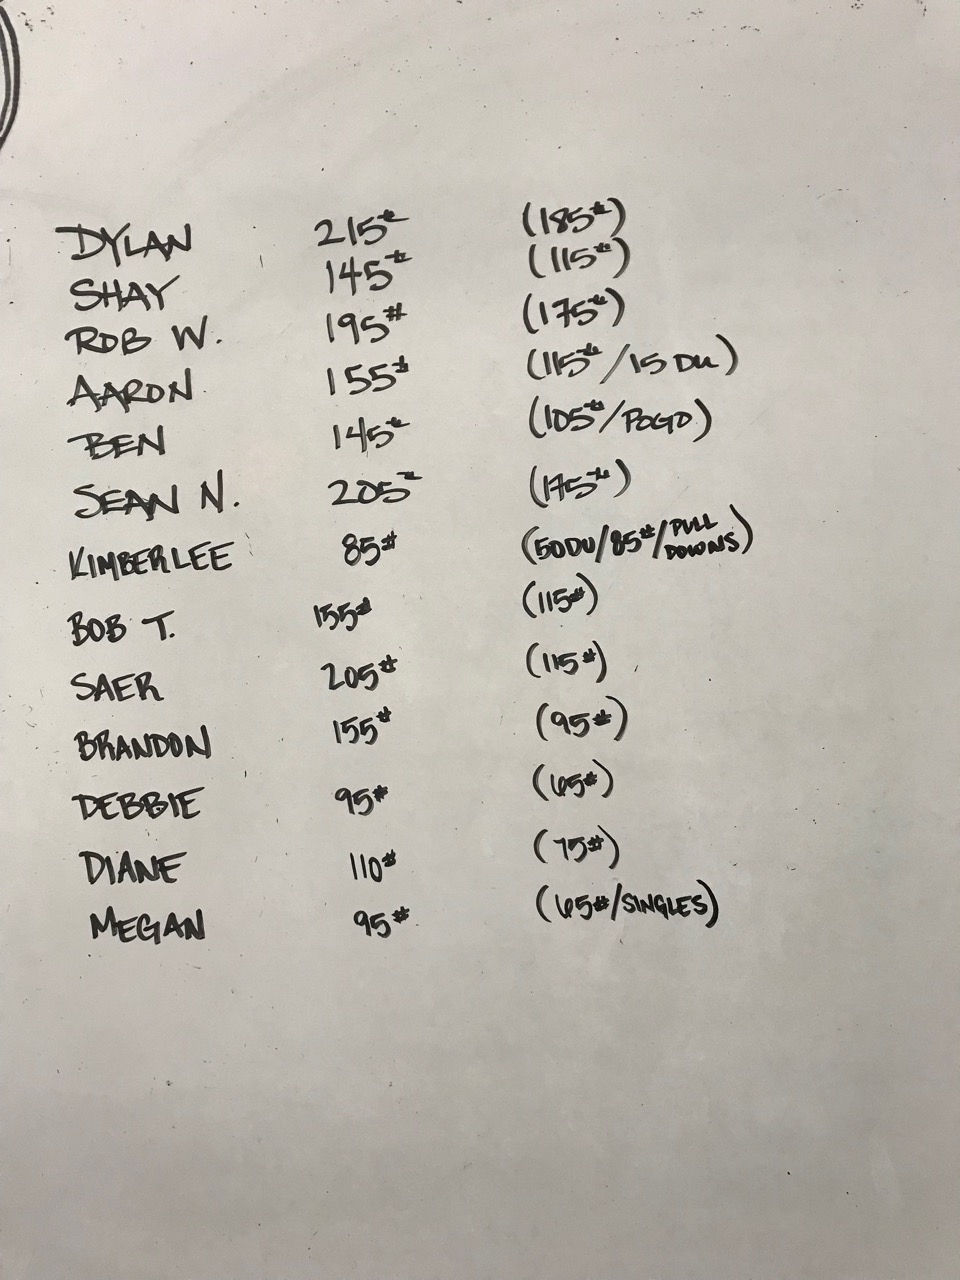 DYLAN 215# (185#)
SHAY 145# (115#)
ROB W. 195# (175#)
AARON 155# (115#/15 DU)
BEN 145# (105#/POGO)
SEAN N. 205# (175#)
KIMBERLEE 85# (50DU/85#/PULL DOWNS)
BOB T. 155# (115#)
SAER 205# (115#)
BRANDON 155# (95#)
DEBBIE 95# (65#)
DIANE 110# (75#)
MEGAN 95# (65#/SINGLES)